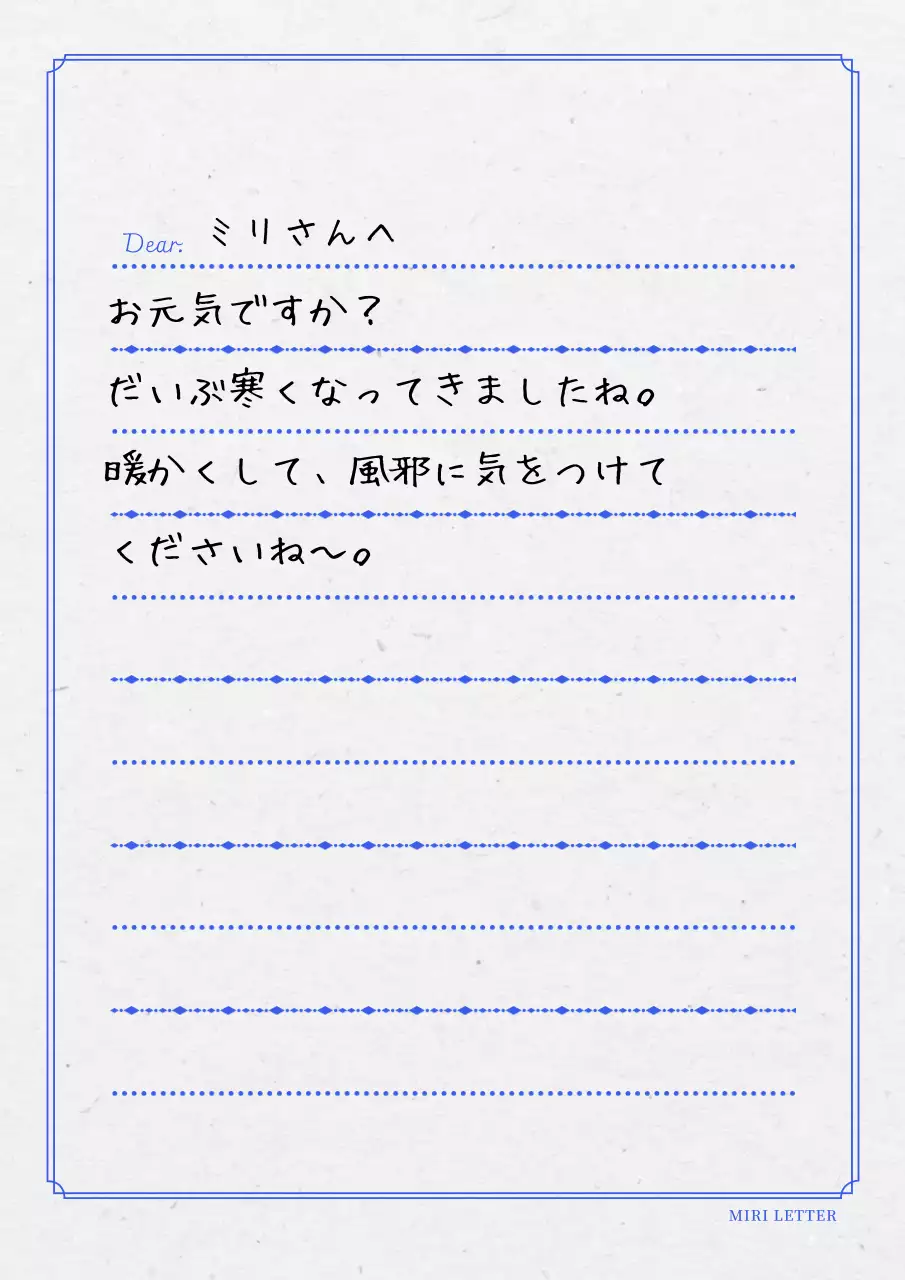 Dear. ミリさんへ
お元気ですか？
だいぶ寒くなってきましたね。
暖かくして、風邪に気をつけて
くださいね〜。
MIRI LETTER